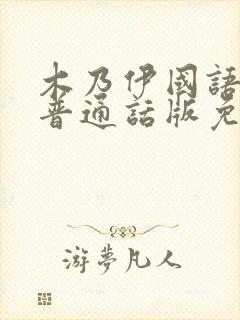 木乃伊國語
普通話版免
游夢凡人